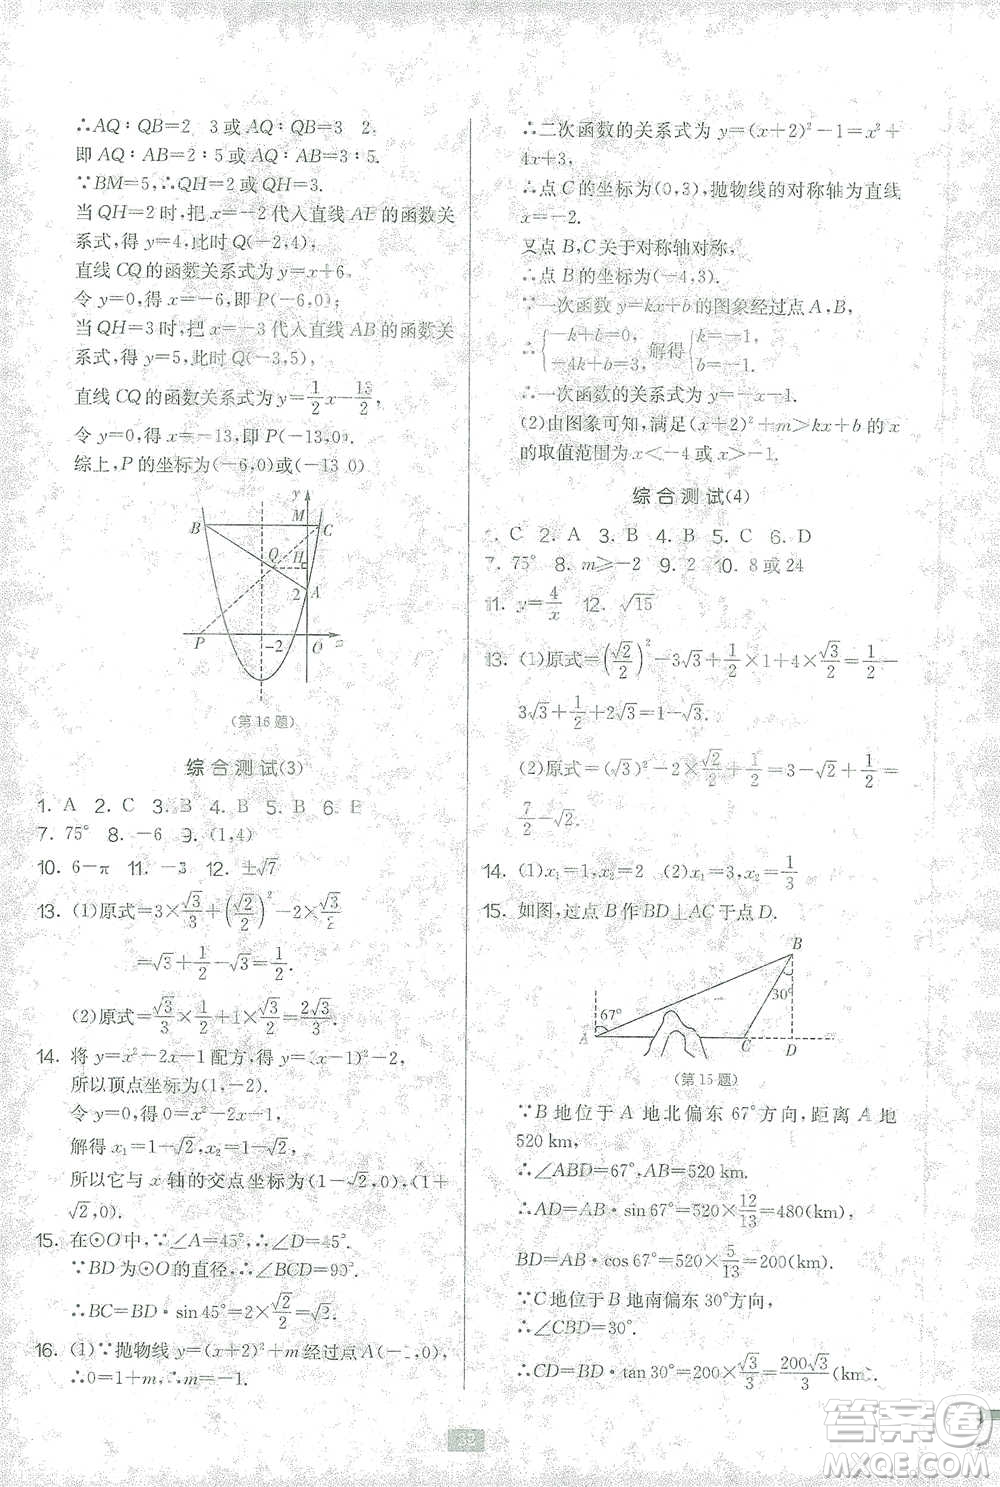 ∴AQ∶QB=2 3或AQ∶QB=3 2.
即AQ∶AB=2∶5或AQ∶AB=3∶5.
∵BM=5,∴QH=2或QH=3.
当QH=2时,把x=-2代入直线AE的函数关
系式,得y=4,此时Q(-2,4),
直线CQ的函数关系式为y=x+6,
令y=0,得x=-6,即P(-6,0);
当QH=3时,把x=-3代入直线AB的函数关
系式,得y=5,此时Q(-3,5),
直线CQ的函数关系式为y=1/2x-13/2,
令y=0,得x=-13,即P(-13,0).
综上,P的坐标为(-6,0)或(-13 0)
y
M
B
C
Q
H
2
A
P
-2
O
x
(第16题)
综合测试(3)
1. A 2. C 3. B 4. B 5. B 6. B
7. 75° 8. -6 9. (1,4)
10. 6-π 11. -3 12. ±√7
13. (1)原式=3×√3/3+(√2/2)²-2×√3/2
=√3+1/2-√3=1/2.
(2)原式=√3/3×1/2+1×√3/2=2√3/3.
14. 将y=x²-2x-1配方,得y=(x-1)²-2,
所以顶点坐标为(1,-2).
令y=0,得0=x²-2x-1,
解得x₁=1-√2,x₂=1+√2.
所以它与x轴的交点坐标为(1-√2,0),(1+
√2,0).
15. 在⊙O中,∵∠A=45°,∴∠D=45°.
∵BD为⊙O的直径,∴∠BCD=90°,
∴BC=BD·sin 45°=2×√2/2=√2.
16. (1)∵抛物线y=(x+2)²+m经过点A(- ,0),
∴0=1+m,∴m=-1.
∴二次函数的关系式为y=(x+2)²-1=x²+
4x+3,
∴点C的坐标为(0,3),抛物线的对称轴为直线
x=-2.
又点B,C关于对称轴对称,
∴点B的坐标为(-4,3).
∵一次函数y=kx+b的图象经过点A,B,
∴{-k+b=0, -4k+b=3, 解得{k=-1, b=-1.
∴一次函数的关系式为y=-x-1.
(2)由图象可知,满足(x+2)²+m>kx+b的x
的取值范围为x<-4或x>-1.
综合测试(4)
1. C 2. A 3. B 4. B 5. C 6. D
7. 75° 8. m≥-2 9. 2 10. 8或24
11. y=4/x 12. √15
13. (1)原式=(√2/2)²-3√3+1/2×1+4×√3/2=1/2-
3√3+1/2+2√3=1-√3.
(2)原式=(√3)²-2×√2/2+1/2=3-√2+1/2=
7/2-√2.
14. (1)x₁=1,x₂=2 (2)x₁=1,x₂=1/3
15. 如图,过点B作BD⊥AC于点D.
B
30°
67°
A
C
D
(第15题)
∵B地位于A地北偏东67°方向,距离A地
520 km,
∴∠ABD=67°,AB=520 km.
∴AD=AB·sin 67°=520×12/13=480(km),
BD=AB·cos 67°=520×5/13=200(km).
∵C地位于B地南偏东30°方向,
∴∠CBD=30°.
∴CD=BD·tan 30°=200×√3/3=200√3/3(km).
39
答案圈
MXQE.COM